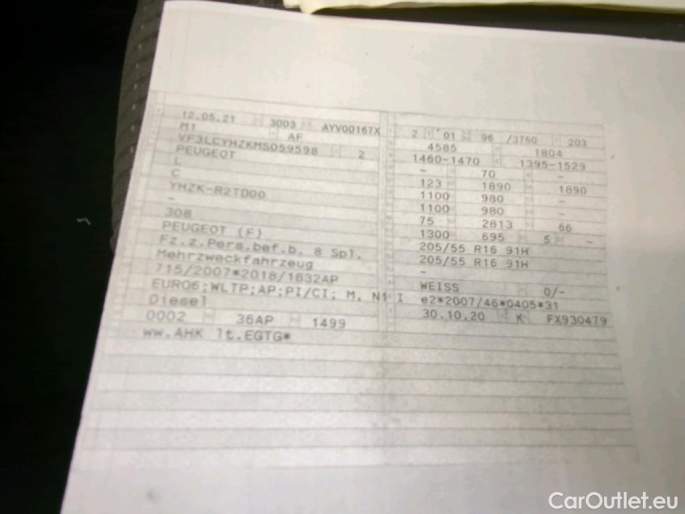 12.05.21 3003 AYV00167X
M1 AF
VF3LCYHZKMS059598 2
PEUGEOT
L
C
YHZK-R2TD00
-
308
PEUGEOT (F)
Fz.z.Pers.bef.b. 8 Spl.
Mehrzweckfahrzeug
715/2007*2018/1832AP
EURO6;WLTP;AP;PI/CI; M, N1 I
Diesel
0002 36AP 1499
ww.AHK lt.EGTG*
2 01 96 /3750 203
4585 1804
1460-1470 1395-1529
- 70 -
123 1890 1890
1100 980 -
1100 980 -
75 2813 66
1300 695 5 -
205/55 R16 91H
205/55 R16 91H
-
WEISS 0/-
e2*2007/46*0405*31
30.10.20 K FX930479
CarOutlet.eu